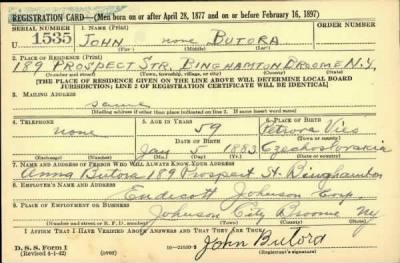 REGISTRATION CARD—(Men born on or after April 28, 1877 and on or before February 16, 1897)
SERIAL NUMBER 1. NAME (Print) ORDER NUMBER
U 1535 JOHN none BUTORA
(First) (Middle) (Last)
2. PLACE OF RESIDENCE (Print)
189 PROSPECT STR. BINGHAMTON BROOME N.Y.
(Number and street) (Town, township, village, or city) (County) (State)
[THE PLACE OF RESIDENCE GIVEN ON THE LINE ABOVE WILL DETERMINE LOCAL BOARD
JURISDICTION; LINE 2 OF REGISTRATION CERTIFICATE WILL BE IDENTICAL]
3. MAILING ADDRESS
same
(Mailing address if other than place indicated on line 2. If same insert word same)
4. TELEPHONE 5. AGE IN YEARS 6. PLACE OF BIRTH
none 59 Petrova Vies
DATE OF BIRTH (Town or county)
Jan 5 1883 Czechoslovakia
(Exchange) (Number) (Mo.) (Day) (Yr.) (State or country)
7. NAME AND ADDRESS OF PERSON WHO WILL ALWAYS KNOW YOUR ADDRESS
Anna Butora 189 Prospect St. Binghamton
8. EMPLOYER'S NAME AND ADDRESS
Endicott Johnson Corp.
9. PLACE OF EMPLOYMENT OR BUSINESS
Johnson City Broome Ny
(Number and street or R. F. D. number) (Town) (County) (State)
I AFFIRM THAT I HAVE VERIFIED ABOVE ANSWERS AND THAT THEY ARE TRUE.
John Butora
D. S. S. Form 1
(Revised 4-1-42) (over) (Registrant's signature)